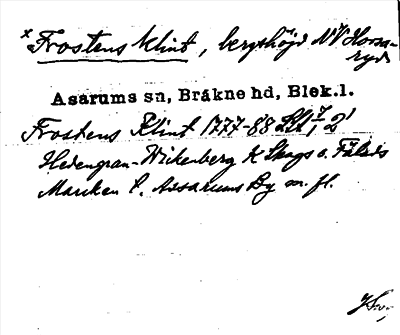 x Frostens klint, bergshöjd NV Hossa-
ryd
Asarums sn, Bräkne hd, Blek.l.
Frostens Klint 1777-88 2
Hedengran-Wickenberg K Skogs o. Fäleds
Marcken t. Assarums By m. fl.